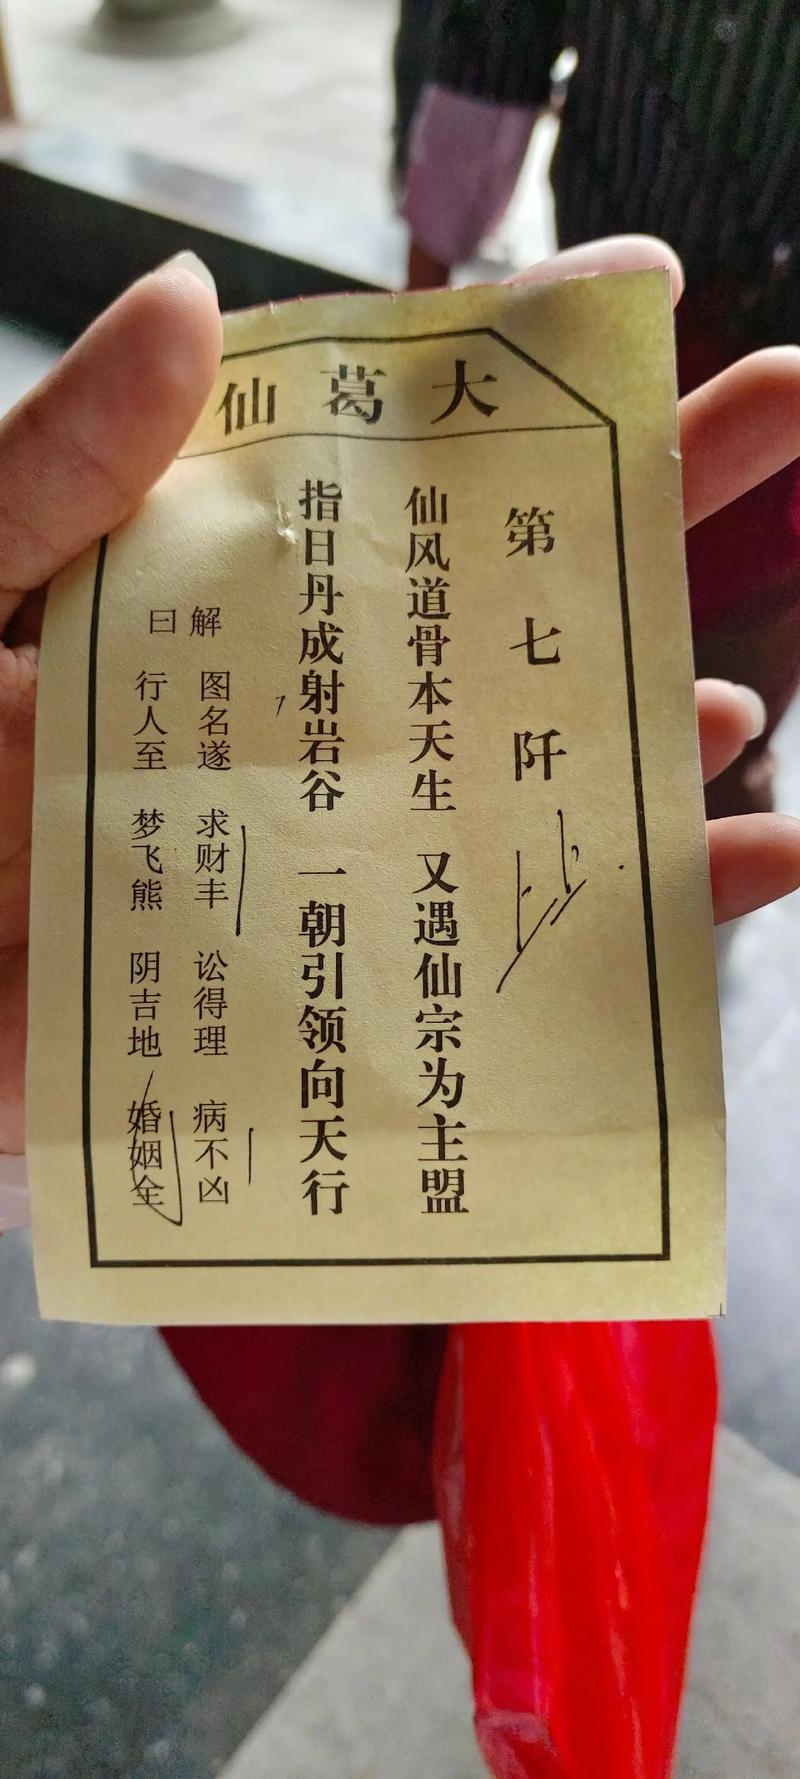 大葛仙
第七阡
仙风道骨本天生 又遇仙宗为主盟
指日丹成射岩谷 一朝引领向天行
解曰
图名遂 求财丰 讼得理 病不凶
行人至 梦飞熊 阴吉地 婚姻全